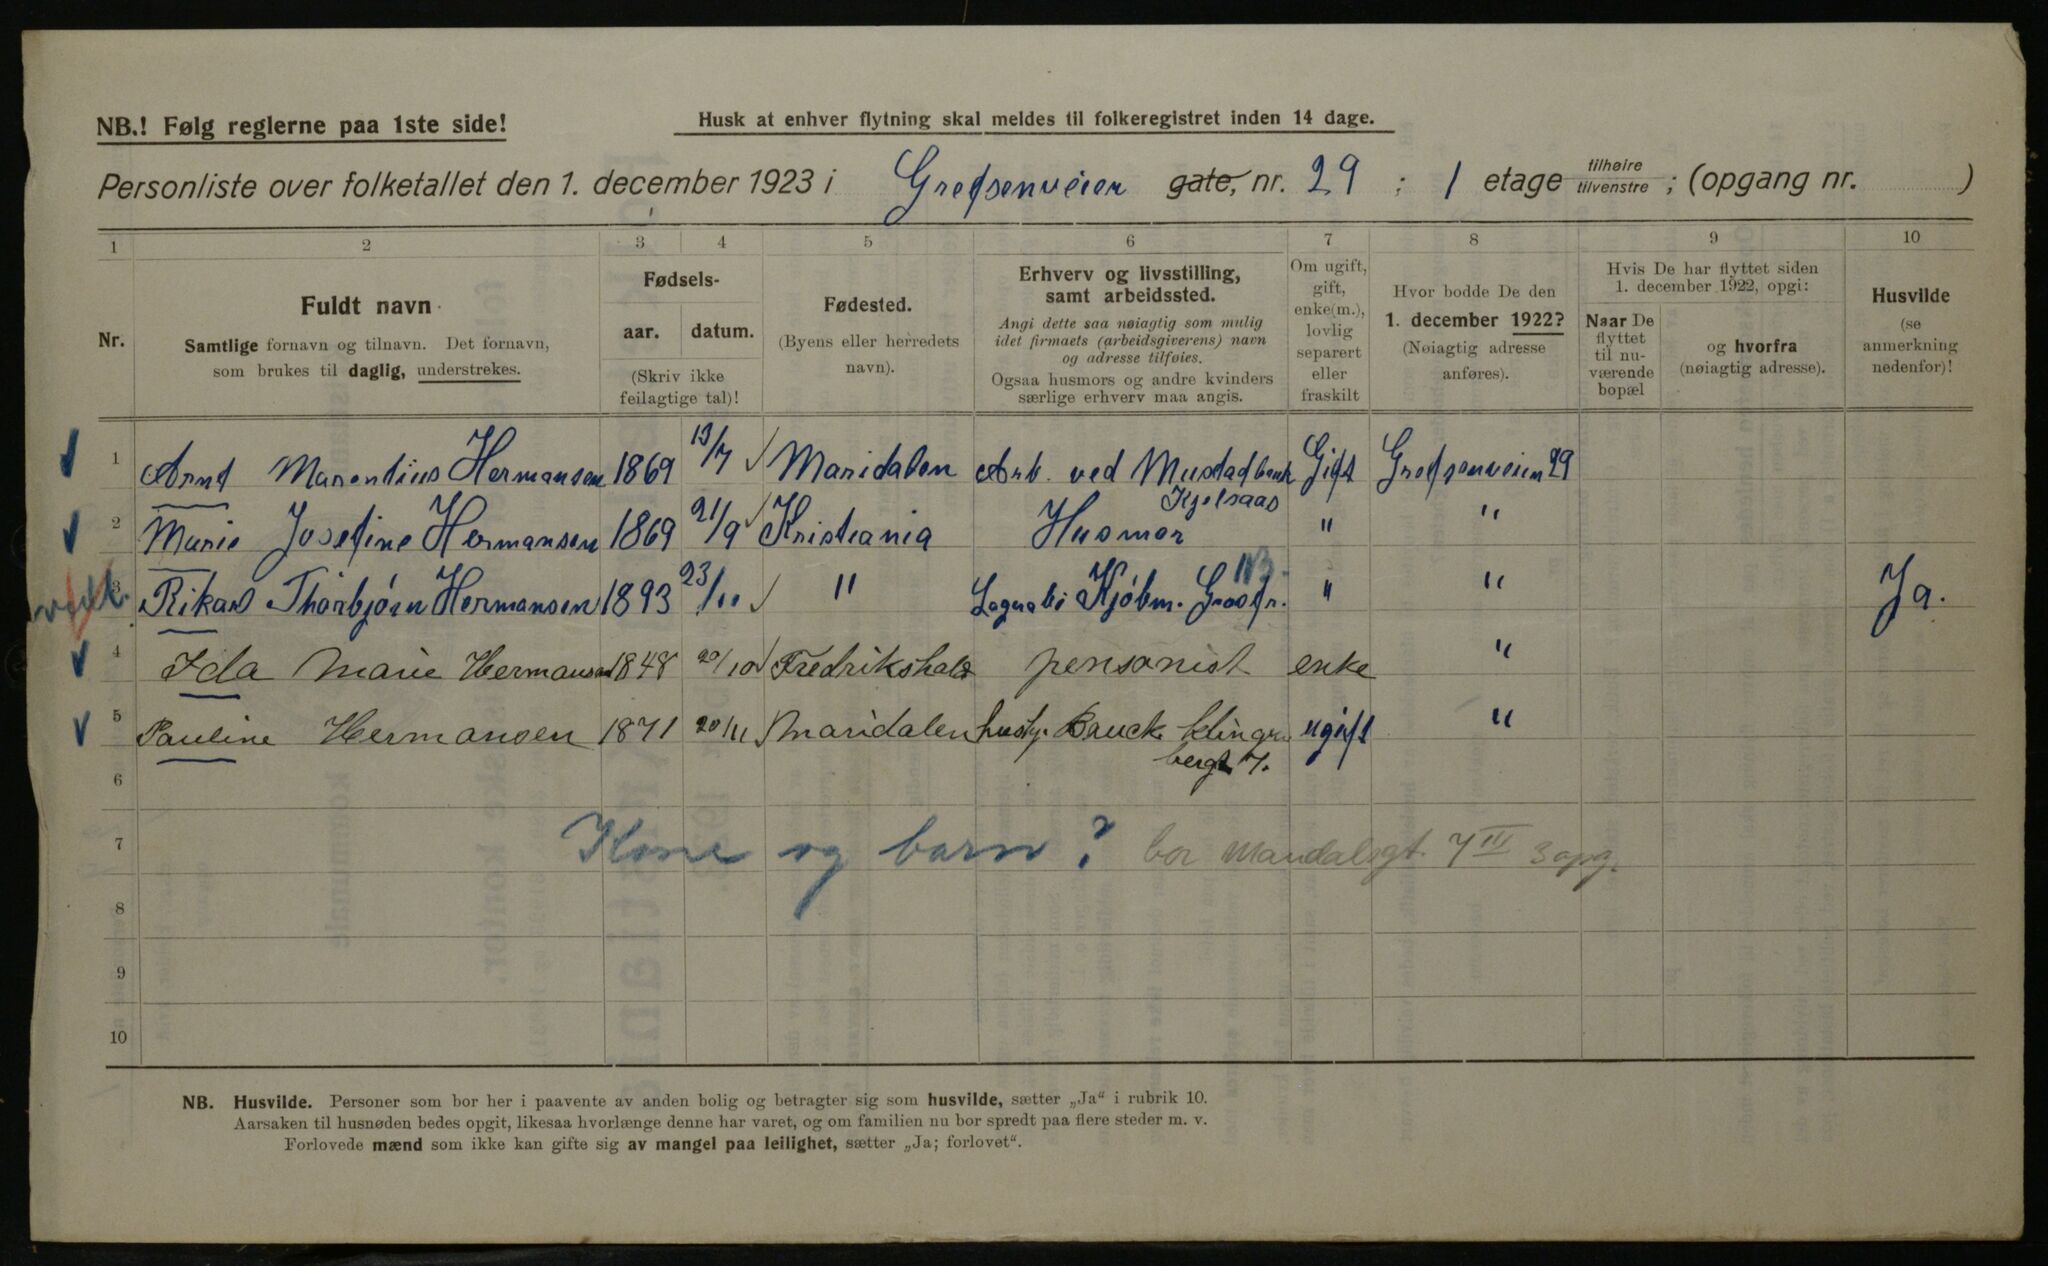 NB.! Følg reglerne paa 1ste side!
Husk at enhver flytning skal meldes til folkeregistret inden 14 dage.
Personliste over folketallet den 1. december 1923 i Grefsenveien gate, nr. 29 ; 1 etage tilhøire tilvenstre ; (opgang nr. )
1 2 3 4 5 6 7 8 9 10
Nr.
Fuldt navn
Samtlige fornavn og tilnavn. Det fornavn,
som brukes til daglig, understrekes.
Fødsels-
aar. datum.
(Skriv ikke
feilagtige tal)!
Fødested.
(Byens eller herredets
navn).
Erhverv og livsstilling,
samt arbeidssted.
Angi dette saa nøiagtig som mulig
idet firmaets (arbeidsgiverens) navn
og adresse tilføies.
Ogsaa husmors og andre kvinders
særlige erhverv maa angis.
Om ugift,
gift,
enke(m.),
lovlig
separert
eller
fraskilt
Hvor bodde De den
1. december 1922?
(Nøiagtig adresse
anføres).
Hvis De har flyttet siden
1. december 1922, opgi:
Naar De
flyttet
til nu-
værende
bopæl
og hvorfra
(nøiagtig adresse).
Husvilde
(se
anmerkning
nedenfor)!
1 Arnt Marentius Hermansen 1869 13/7 Maridalen Arb. ved Mustad Gift Grefsenveien 29
Kjelsaas
2 Marie Josefine Hermansen 1869 21/9 Kristiania Husmor " "
3 Rikard Thorbjørn Hermansen 1893 23/11 " Kjøbm. " " Ja.
4 Ida Marie Hermansen 1848 20/10 Fredrikshald pensonist enke "
5 Pauline Hermansen 1871 20/11 Maridalen Klingen ugift "
bergt 7.
6
7 Kone og barn? bor Mandalsgt. 7 III 3 opg.
8
9
10
NB. Husvilde. Personer som bor her i paavente av anden bolig og betragter sig som husvilde, sætter „Ja“ i rubrik 10.
Aarsaken til husnøden bedes opgit, likesaa hvorlænge denne har varet, og om familien nu bor spredt paa flere steder m. v.
Forlovede mænd som ikke kan gifte sig av mangel paa leilighet, sætter „Ja; forlovet“.